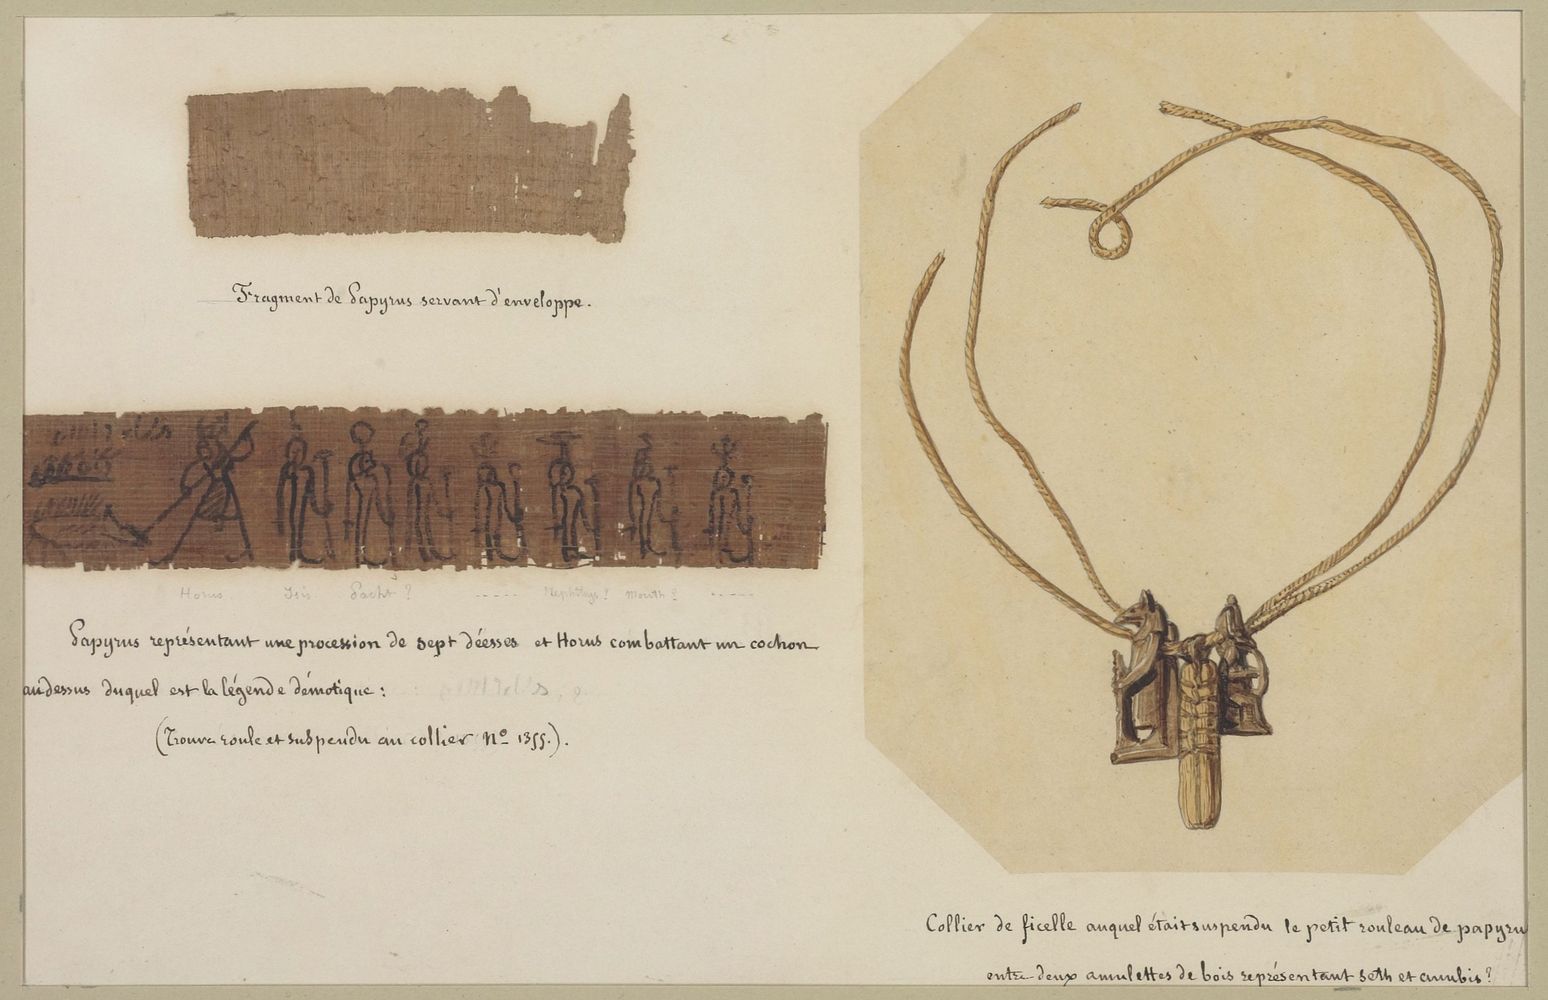 Fragment de Papyrus servant d'enveloppe.
Horus. Isis Pacht ? ----- Nephthys ? Mouth ? -----
Papyrus représentant une procession de sept déesses et Horus combattant un cochon
au dessus duquel est la légende démotique :
(Trouvé roulé et suspendu au collier No 1355.).
Collier de ficelle auquel était suspendu le petit rouleau de papyru
entre deux amulettes de bois représentant Seth et anubis ?